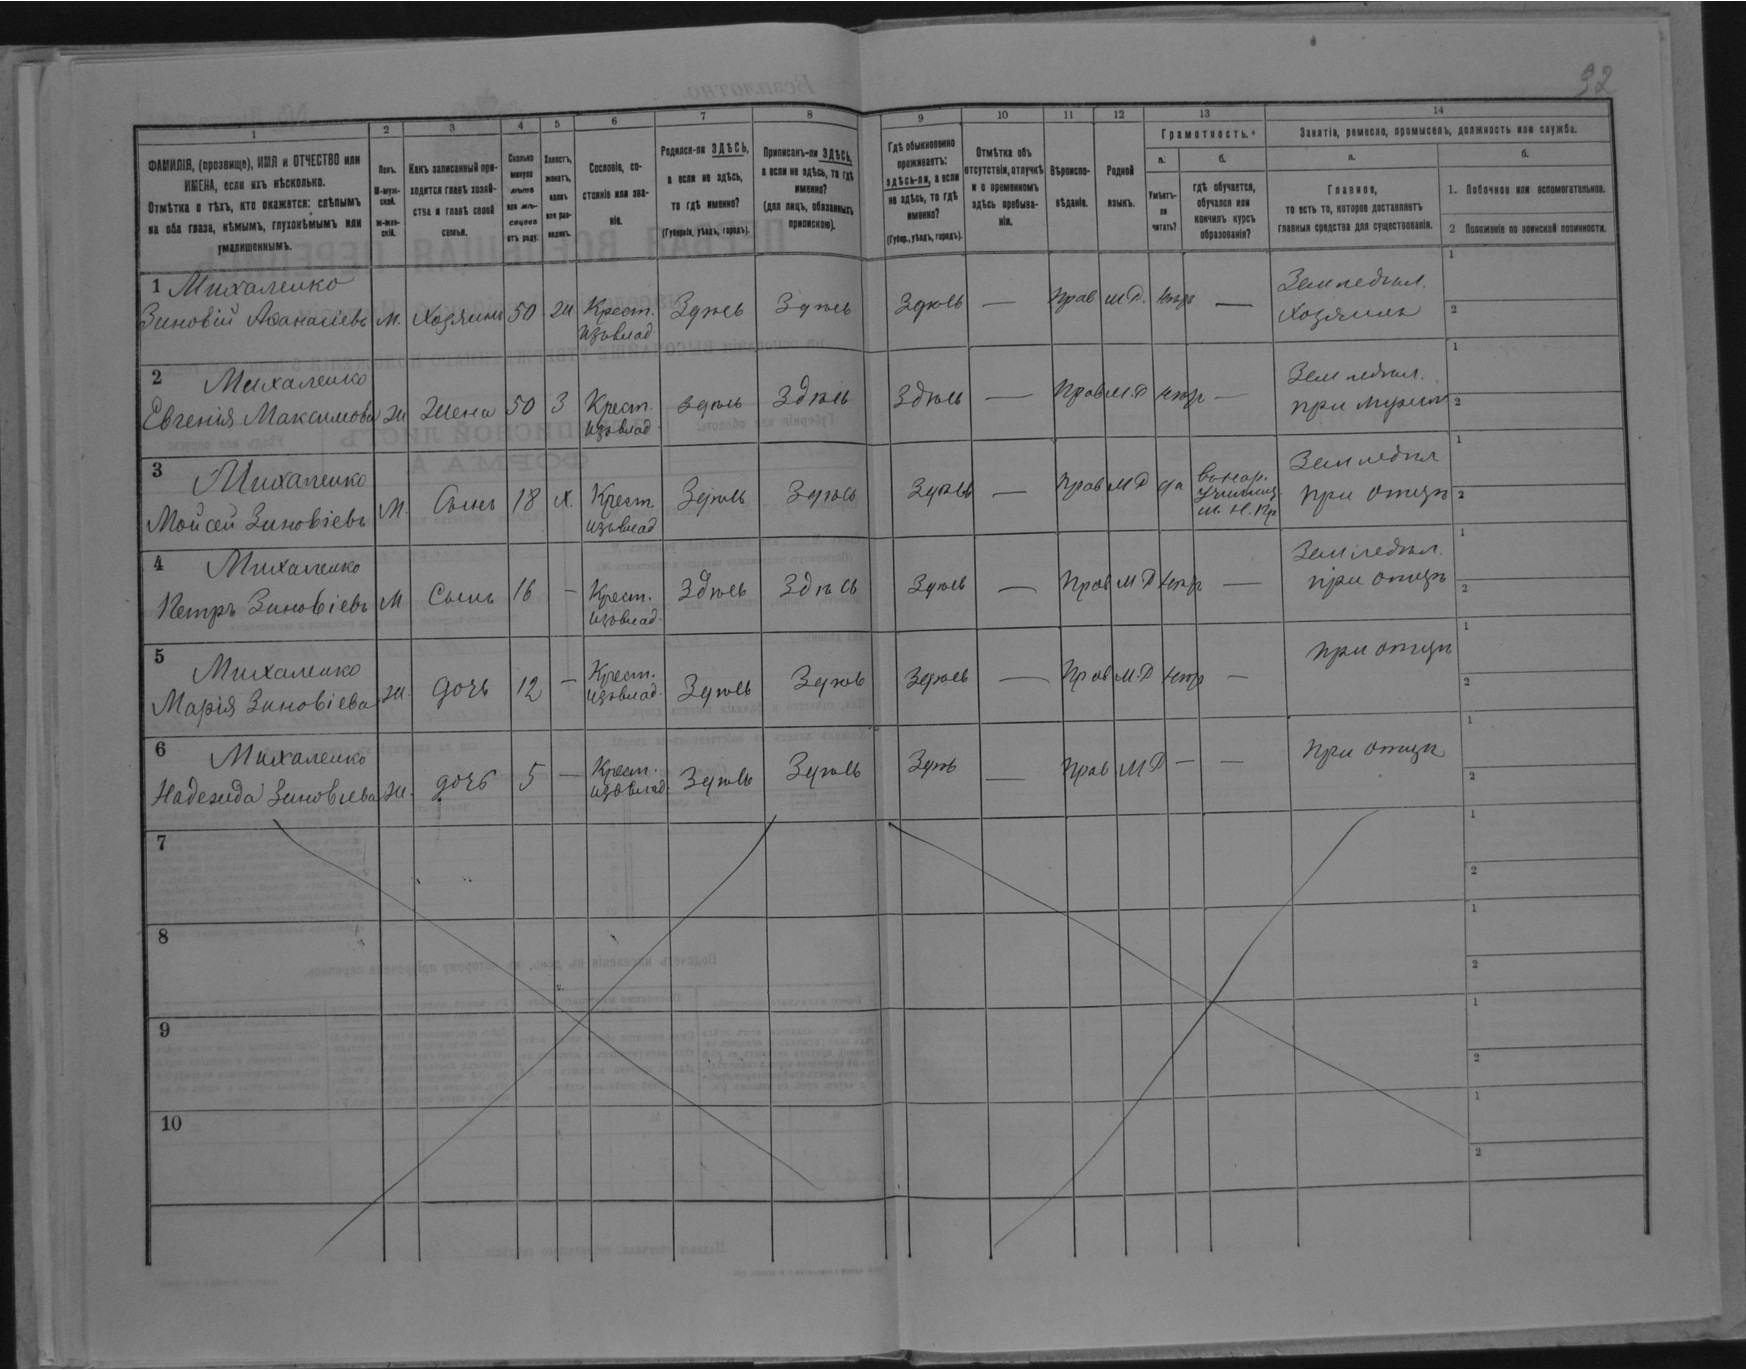 32
1
2
3
4
5
6
7
8
9
10
11
12
13
14
ФАМИЛІЯ, (прозвище), ИМЯ и ОТЧЕСТВО или
ИМЕНА, если ихъ нѣсколько.
Отмѣтка о тѣхъ, кто окажется: слѣпымъ
на оба глаза, нѣмымъ, глухонѣмымъ или
умалишеннымъ.
Полъ.
М-муж-
ской.
Ж-жен-
скій.
Какъ записанный при-
ходится главѣ хозяй-
ства и главѣ своей
семьи.
Сколько
минуло
лѣтъ
или мѣ-
сяцевъ
отъ роду.
Холостъ,
женатъ,
вдовъ
или раз-
веденъ.
Сословіе, со-
стояніе или зва-
ніе.
Родился-ли ЗДѢСЬ,
а если не здѣсь,
то гдѣ именно?
(Губернія, уѣздъ, городъ).
Приписанъ-ли ЗДѢСЬ,
а если не здѣсь, то гдѣ
именно?
(для лицъ, обязанныхъ
припискою).
Гдѣ обыкновенно
проживаетъ:
здѣсь-ли, а если
не здѣсь, то гдѣ
именно?
(Губер., уѣздъ, городъ).
Отмѣтка объ
отсутствіи, отлучкѣ
и о временномъ
здѣсь пребыва-
ніи.
Вѣроиспо-
вѣданіе.
Родной
языкъ.
Грамотность.
а.
б.
Умѣетъ-
ли
читать?
гдѣ обучается,
обучался или
кончилъ курсъ
образованія?
Занятіе, ремесло, промыселъ, должность или служба.
а.
б.
Главное,
то есть то, которое доставляетъ
главныя средства для существованія.
1. Побочное или вспомогательное.
2 Положеніе по воинской повинности.
1 Михаленко
Зиновій Аѳанасіевъ М. Хозяинъ 50 Ж Крест. Здѣсь Здѣсь Здѣсь — Прав М.Д. нѣтъ — Земледѣл.
изъ влад. Хозяинъ
1
2
2 Михаленко
Евгенія Максимова Ж Жена 50 З Крест. Здѣсь Здѣсь Здѣсь — Прав М.Д нѣтъ — Земледѣл.
изъ влад. при мужѣ
1
2
3 Михаленко
Мойсей Зиновіевъ М. Сынъ 18 Х. Крест. Здѣсь Здѣсь Здѣсь — Прав М Д да въ нар. Земледѣл
изъ влад училищ. при отцѣ
м. Н. Пр
1
2
4 Михаленко
Петръ Зиновіевъ М Сынъ 16 — Крест. Здѣсь Здѣсь Здѣсь — Прав М Д нѣтъ — Земледѣл.
изъ влад. при отцѣ
1
2
5 Михаленко
Марія Зиновіева Ж. дочь 12 — Крест. Здѣсь Здѣсь Здѣсь — Прав М.Д нѣтъ — при отцѣ
изъ влад.
1
2
6 Михаленко
Надежда Зиновіева Ж. дочь 5 — Крест. Здѣсь Здѣсь Здѣсь — Прав М Д — — при отцѣ
изъ влад.
1
2
7
1
2
8
1
2
9
1
2
10
1
2